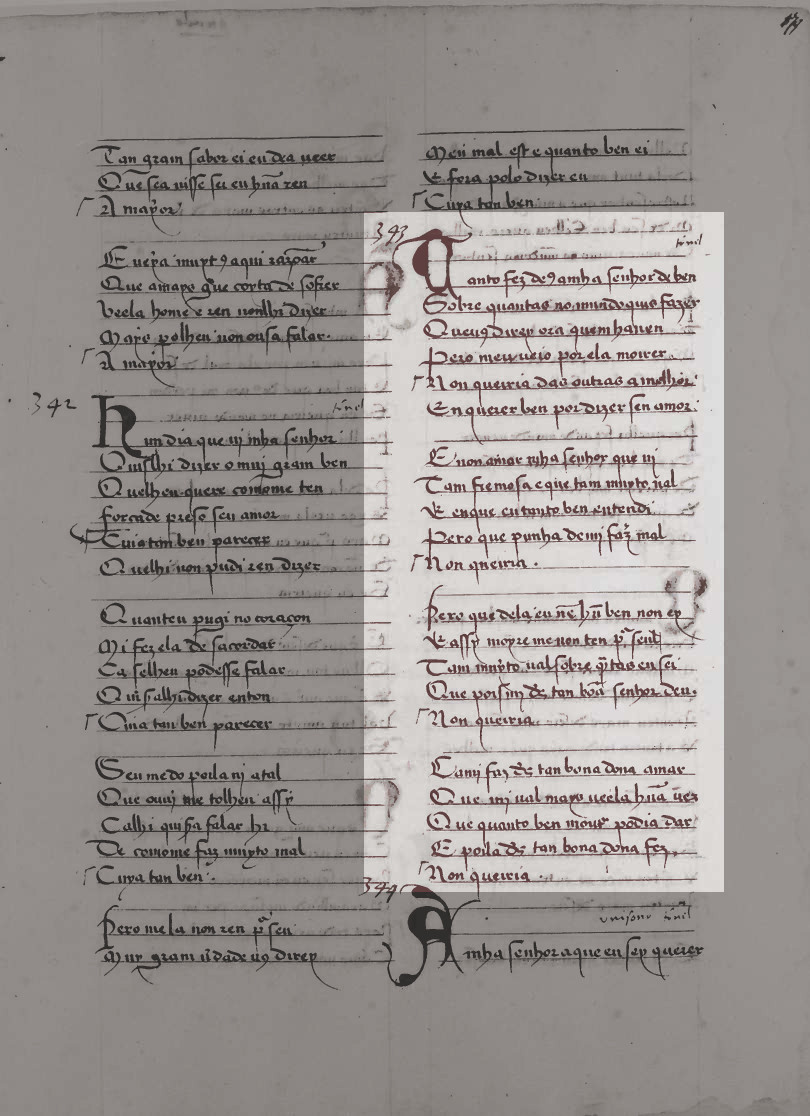 Tan gram sabor ei eu dea ueer
Que sea uisse sei eu hũa ren
A mayor
E uera muyt aqui razoar
Que amayo que coyta de sofrer
Veela home e ren nonlhi dizer
Mays polhen non ousa falar.
A mayor
342
tenel
Hun dia que ui mha senhor
Quislhi dizer o muj gram ben
Quelheu quere comome ten
Forcade preso seu amor
Cuia tan ben parecer
Quelhi non pudi ren dizer
Quanteu pugi no coraçon
Mi fez ela desacordar
Ca selheu podesse falar
Quisalhi dizer enton
Cuia tan ben parecer
Seu medo poila ui atal
Que ouuj me tolheu assy
Calhi quisfa falar hi
De comome faz muyto mal
Cuya tan ben.
Pero mela non ren
Muy gram uerdade uꝯ direy
Meu mal est e quanto ben ei
E fora polo dizer eu
Cuya tan ben
343
tenel
Tanto fez deꝯ a mha senhor de ben
Sobre quantas no mundo quis fazer
Que uꝯ direy ora quem hauen
Pero meu ueio por ela morrer
Non queiria das outras a melhor
En querer ben por dizer sen amor.
E non amar mha senhor que ui
Tam fremosa e que tam muyto ual
E en que eu tanto ben entendi
Pero que punha de mj faz̃ mal
Non queiria.
Pero que dela eu nẽ hũ ben non ey
E assy moyre me non ten
Tam muyto ual sobre q̃tas eu sei
Que pois mj ds̃ tan bõa senhor deu.
Non queiria.
Camj faz ds̃ tan bona dona amar
Que mj ual mays ueela hũa uez
Que quanto ben podia dar
E poila ds̃ tan bona dona fez,
Non queiria.
344
tenel
A mha senhor a que eu sey querer